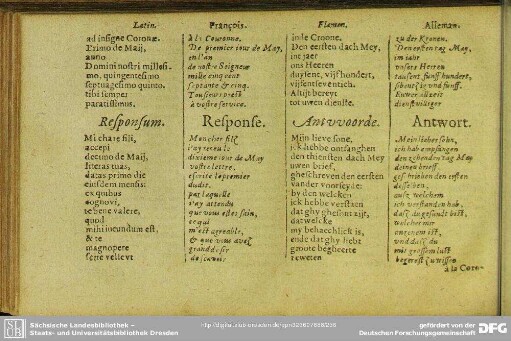 Latin.
ad insigne Coronæ.
Primo de Maij,
anno
Domini nostri millesi-
mo, quingentesimo
septuagesimo quinto.
tibi semper
paratissimus.
Responsum.
Mi chare fili,
accepi
decimo de Maij,
literas tuas,
datas primo die
eiusdem mensis:
ex quibus
cognovi,
te bene valere,
quod
mihi iucundum est,
& te
magnopere
scire vellem
François.
à la Couronne.
De premier iour de May,
en l'an
de nostre Seigneur
mille cinq cent
septante & cinq.
Tousiours prest
à vostre service.
Response.
Mon cher filz
i'ay receu le
dixieme iour de May
vostre lettre,
escrite le premier
dudit,
par laquelle
i'ay attendu
que vous estes sain,
ce qui
m'est agreable,
& que vous avez
grand desir
de sçavoir,
Flamen.
in de Croone.
Den eersten dach Mey,
int jaer
ons Heeren
duysent, vijfhondert,
vijfentseventich.
Altijt bereyt
tot uwen dienste.
Antvvoorde.
Mijn lieve sone,
ick hebbe ontfanghen
den thiensten dach Mey
uwen brief,
gheschreven den eersten
vander voorseyde:
by den welcken
ick hebbe verstaen
dat ghy ghesont zijt,
datwelcke
my behaechlick is,
ende dat ghy hebt
groote begheerte
te weten
Alleman.
zu der Kronen.
Den ersten tag May,
im iahr
unsers Herren
tausent funff hundert,
sibentzig und funff.
Euwer allzeit
dienstwilliger
Antwort.
Mein lieber sohn,
ich hab empfangen
den zehenden tag May
deinen brieff,
geschrieben den ersten
desselben,
aufz welchem
ich verstanden hab,
dasz du gesundt bist,
welcher mir
angenem ist,
und dasz du
mit grossem lust
begerest zu wissen
à la Coro-
Sächsische Landesbibliothek –
Staats- und Universitätsbibliothek Dresden
gefördert von der
Deutschen Forschungsgemeinschaft
DFG